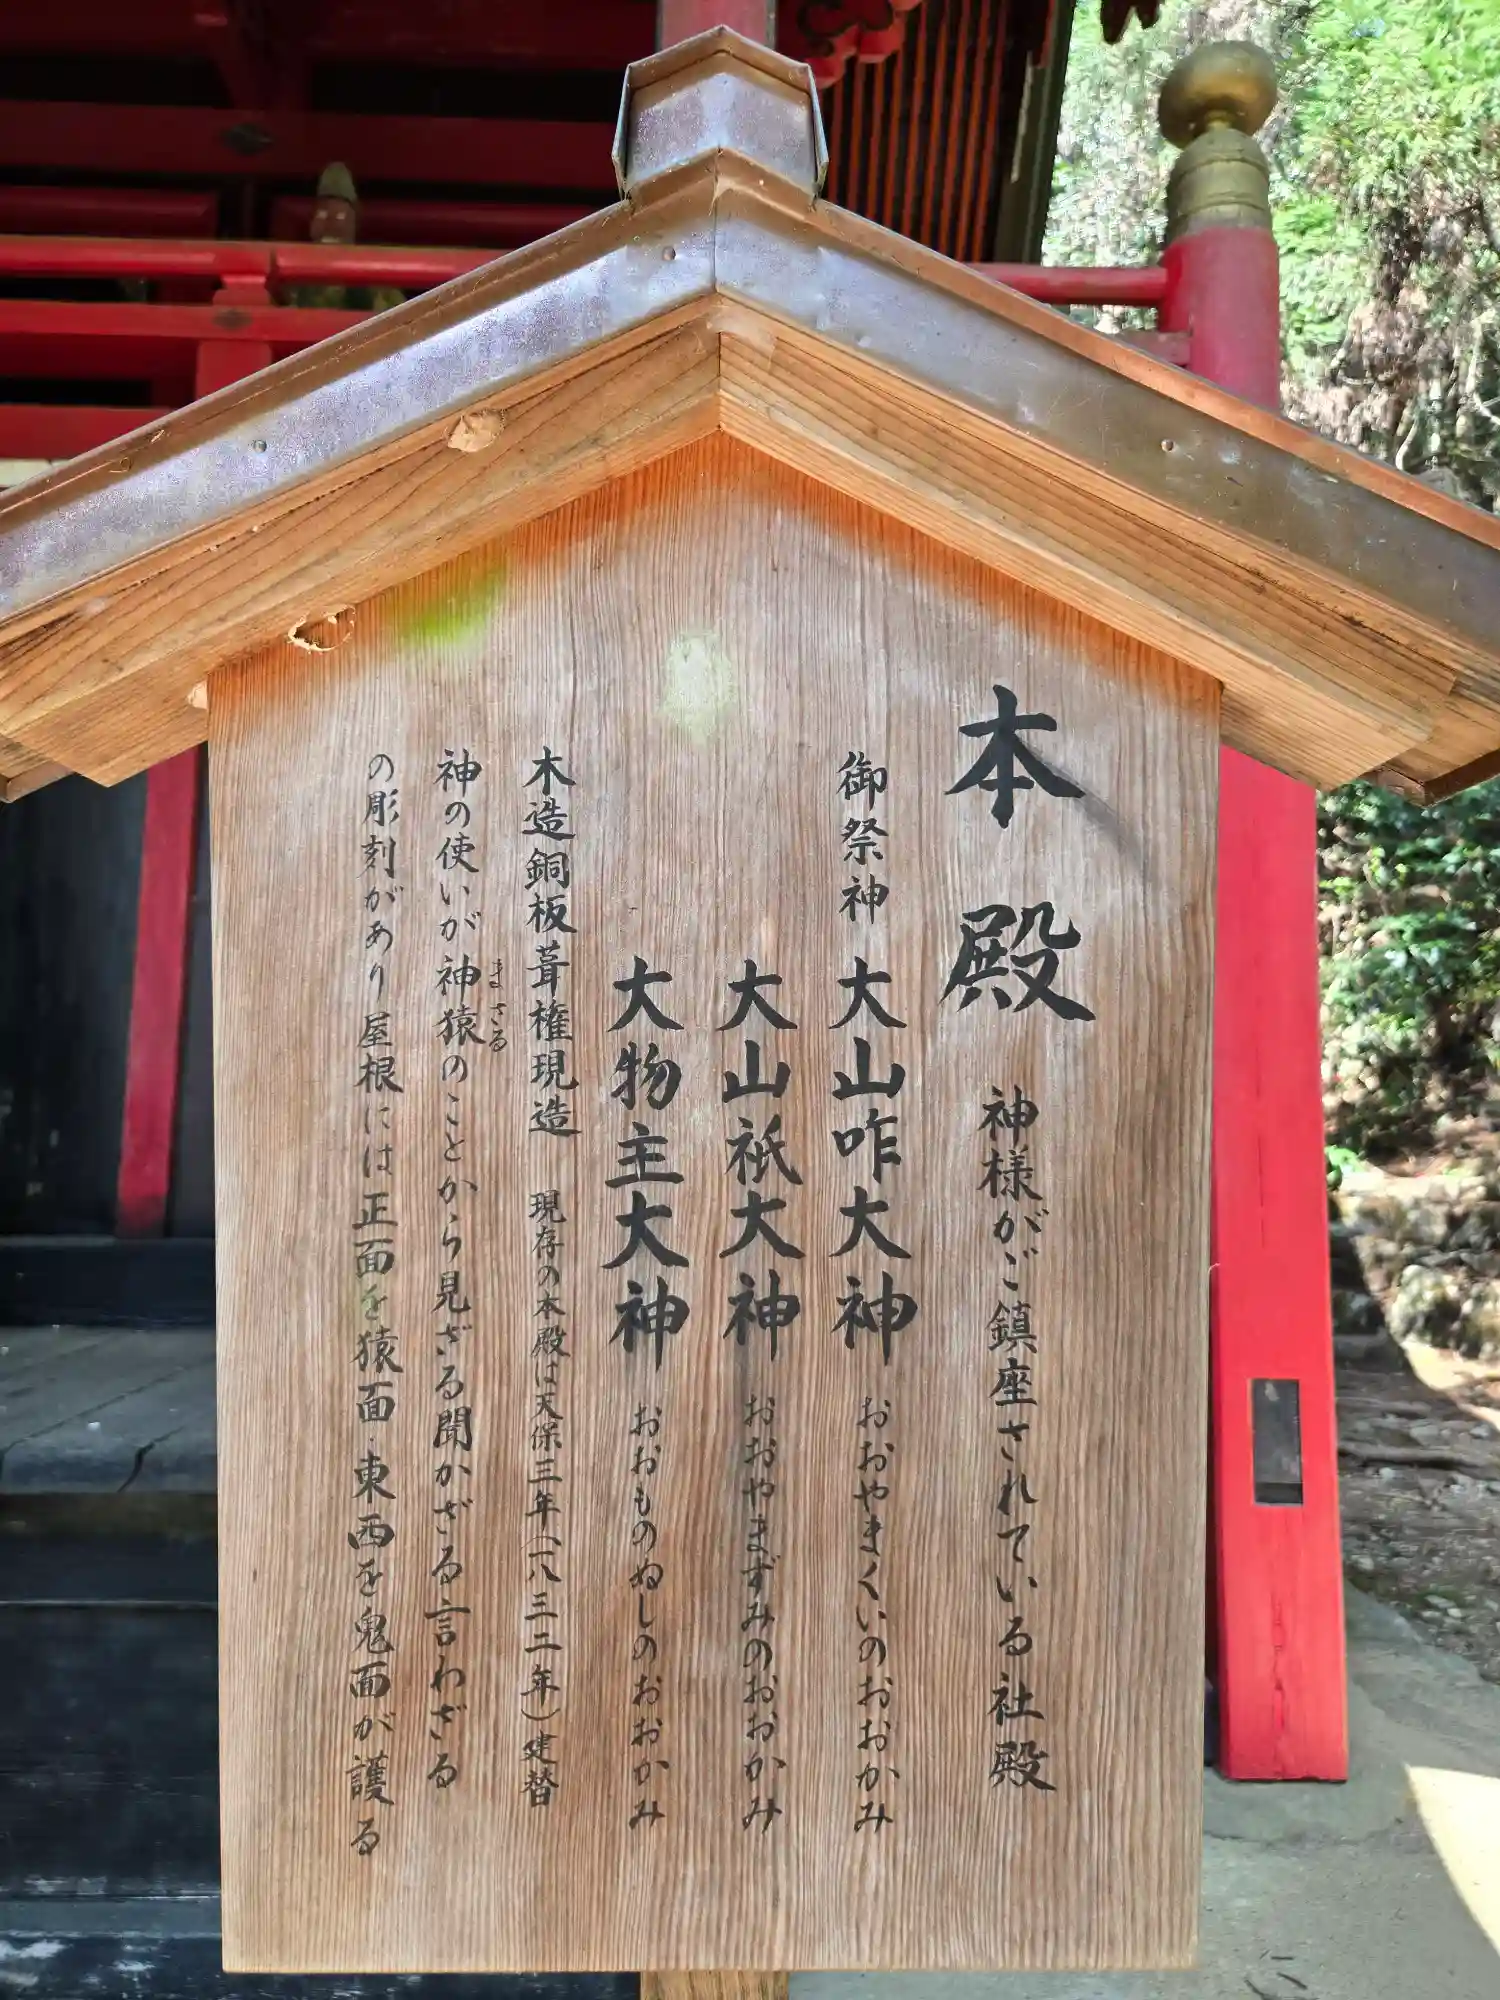 本殿 神様がご鎮座されている社殿
御祭神 大山咋大神 おおやまくいのおおかみ
大山祇大神 おおやまずみのおおかみ
大物主大神 おおものぬしのおおかみ
木造銅板葺権現造 現存の本殿は天保三年(一八三二年)建替
まさる
神の使いが神猿のことから見ざる聞かざる言わざる
の彫刻があり屋根には正面を猿面・東西を鬼面が護る